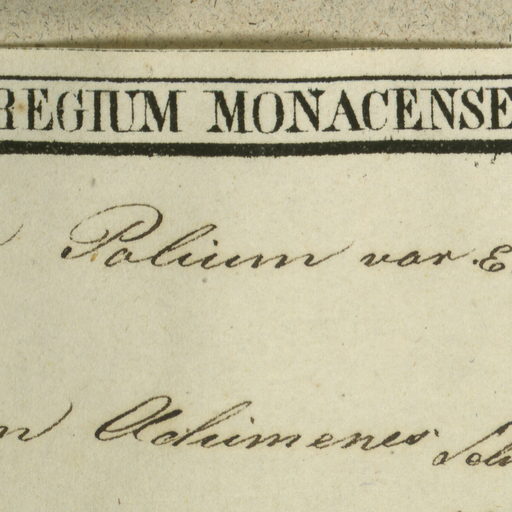 REGIUM MONACENSE
Polium var. E
n Achimenes